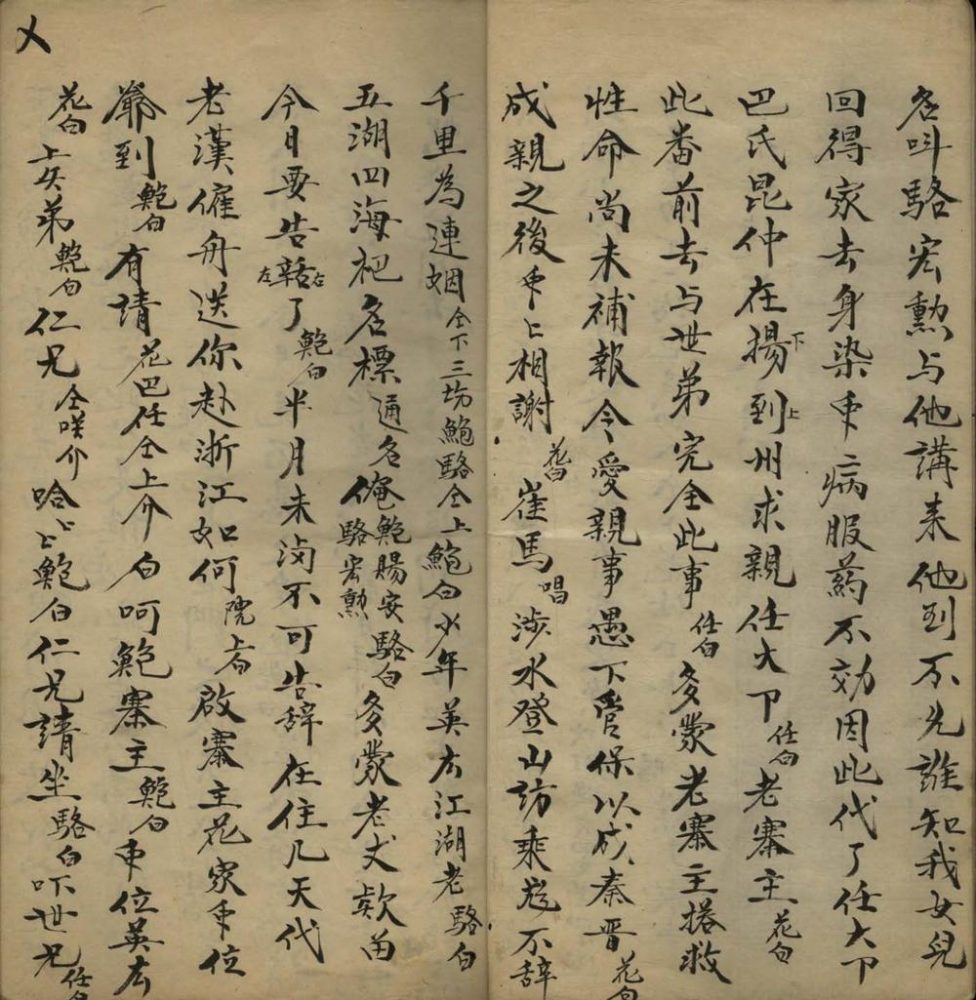 名叫駱宏勲与他講来他到不允誰知我女兒
回得家去身染重病服药不効因此代了任大下
巴氏昆仲在揚下到上州求親任大下任白老寨主花白
此番前去与世弟完全此事任白多蒙老寨主搭救
性命尚未補報令愛親事愚下管保以成秦晋花白
成親之後重上相謝花白崔馬唱涉水登山訪乘不辞
千里為連姻仝下三场鮑駱仝上鮑白少年英江湖老駱白
五湖四海把名標通名俺鮑賜安駱宏勲駱白多蒙老丈欵留
今日要告辞左右了鮑白半月未滿不可告辞在住几天代
老漢僱舟送你赴浙江如何院上白啟寨主花家重位
爺到鮑白有請花巴任仝上介白呵鮑寨主鮑白重位英
花白上矢弟鮑白仁兄仝咲介哈上鮑白仁兄請坐駱白吓世兄任白